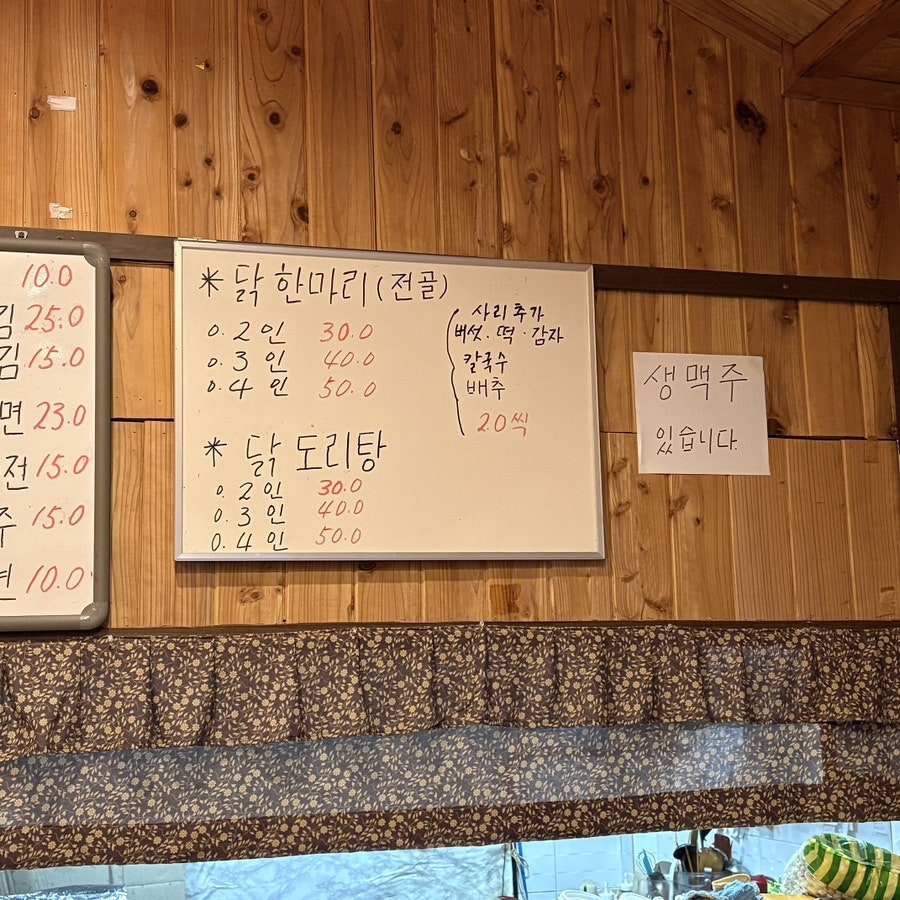 10.0
김 25.0
김 15.0
면 23.0
전 15.0
주 15.0
10.0
* 닭한마리(전골)
0. 2인 30.0
0. 3인 40.0
0. 4인 50.0
사리추가
버섯. 떡. 감자
칼국수
배추
2.0씩
* 닭도리탕
0. 2인 30.0
0. 3인 40.0
0. 4인 50.0
생맥주
있습니다.